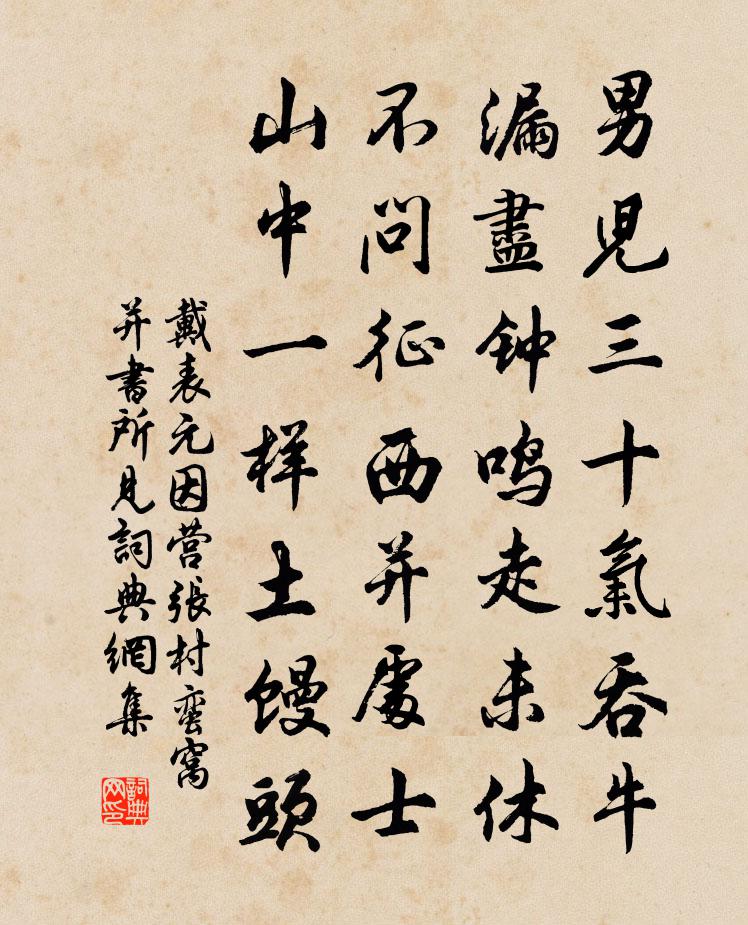 男兒三十氣吞牛
漏盡钟鸣走未休
不问征西并處士
山中一样土馒頭
戴表元因营張村蛮窩
并書所見詞典網集
詞典
网印